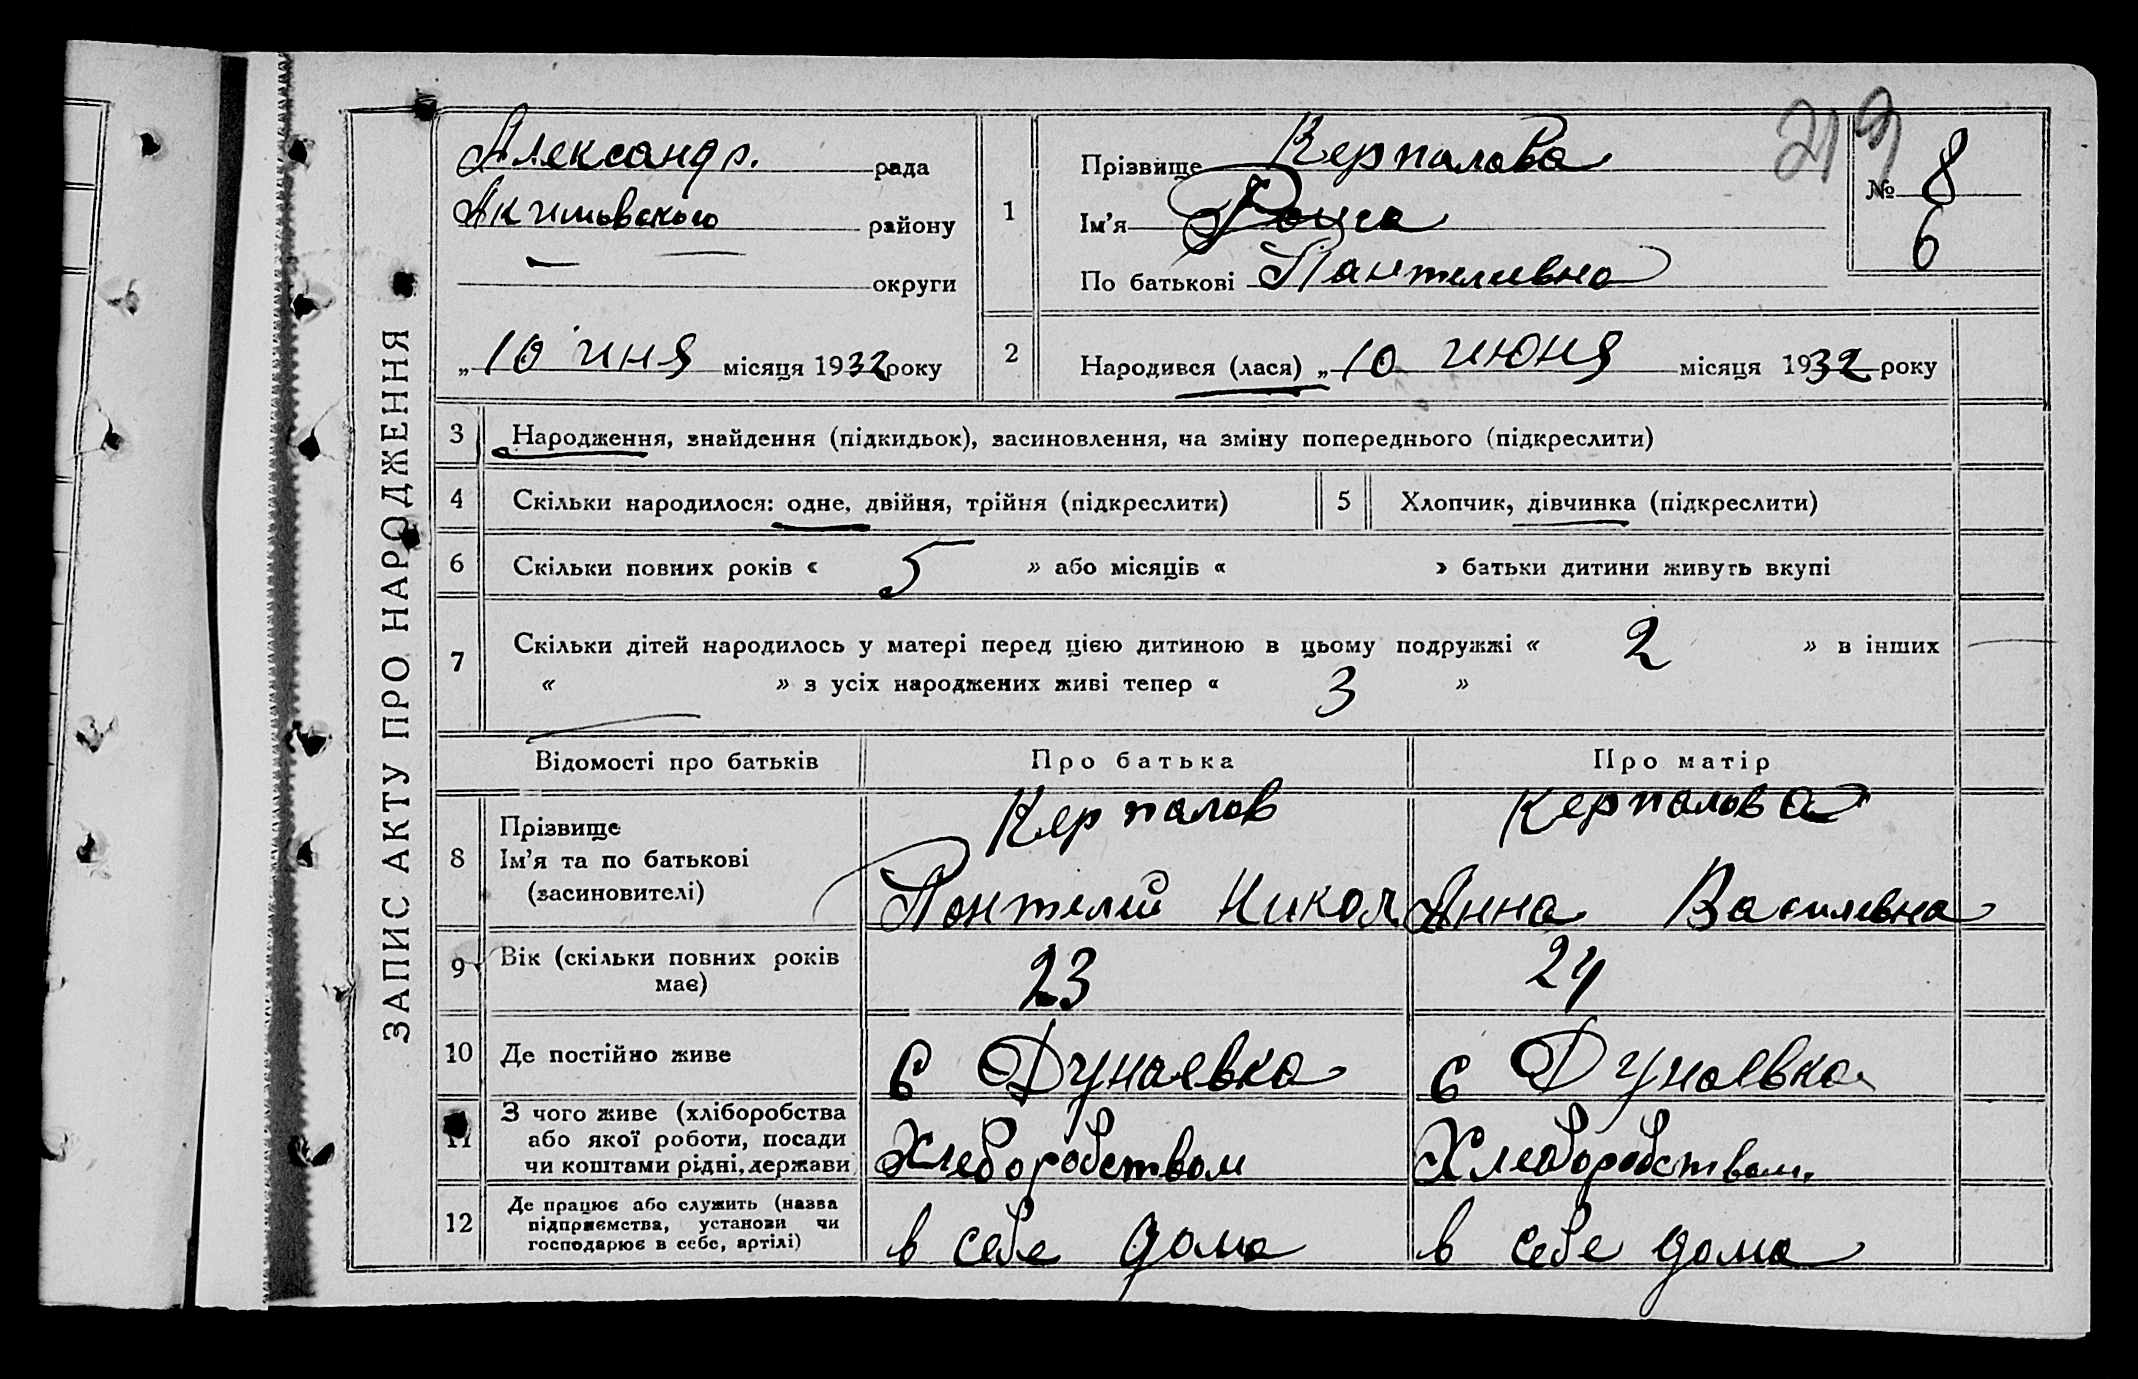 ЗАПИС АКТУ ПРО НАРОДЖЕННЯ
219
Александр. рада
Акимовского району
— — округи
„10 иня місяця 1932 року
1
Прізвище Керпалова
Ім'я Раиса
По батькові Пантелиевна
№ 8
6
2 Народився (лася) „10 июня місяця 1932 року
3 Народження, знайдення (підкидьок), засиновлення, на зміну попереднього (підкреслити)
4 Скільки народилося: одне, двійня, трійня (підкреслити) 5 Хлопчик, дівчинка (підкреслити)
6 Скільки повних років « 5 » або місяців « » батьки дитини живуть вкупі
7 Скільки дітей народилось у матері перед цією дитиною в цьому подружжі « 2 » в інших —
« — » з усіх народжених живі тепер « 3 »
Відомості про батьків Про батька Про матір
8 Прізвище Керпалов Керпалова
Ім'я та по батькові
(засиновителі) Пантелий Никол Анна Василевна
9 Вік (скільки повних років
має) 23 24
10 Де постійно живе с Дунаевка с Дунаевка
11 З чого живе (хліборобства
або якої роботи, посади
чи коштами рідні, держави Хлеборобством Хлеборобством.
12 Де працює або служить (назва
підприємства, установи чи
господарює в себе, артілі) в себе дома в себе дома